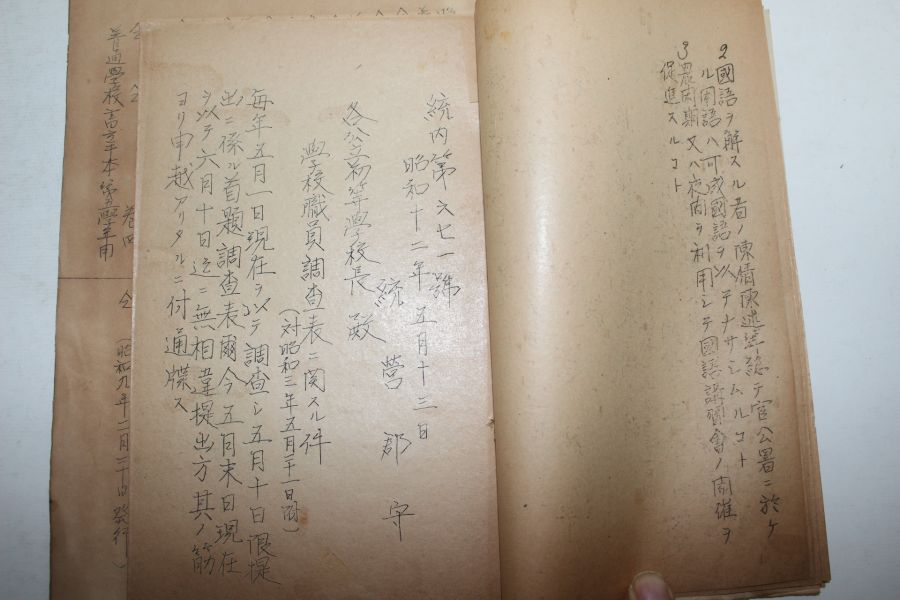 2 國語ヲ解スル者ノ陳情陳述等総テ官公署ニ於ケ
ル用語ハ可成國語ヲ以テナサシムルコト
3 農閑期又ハ夜間ヲ利用シテ國語講習會ノ開催ヲ
促進スルコト
統内第六七一號
昭和十二年五月十三日
統營郡守
各公立初等學校長殿
學校職員調査表ニ関スル件
(対昭和三年五月二十一日附)
毎年五月一日現在ヲ以テ調査シ五月十日限提
出ニ係ル首題調査表爾今五月末日現在
ヲ以テ六月十日迄ニ無相違提出方其ノ筋
ヨリ申越アリタルニ付通牒ス
仝 仝 卷四 仝 (昭和九年二月二十日發行)
普通學校書方手本第四學年用